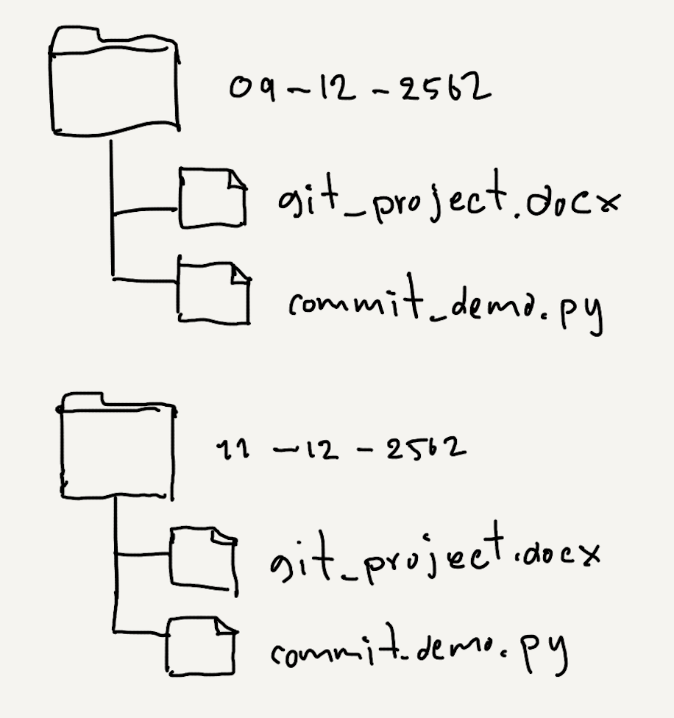 09-12-2562
git_project.docx
commit_demo.py
11-12-2562
git_project.docx
commit_demo.py